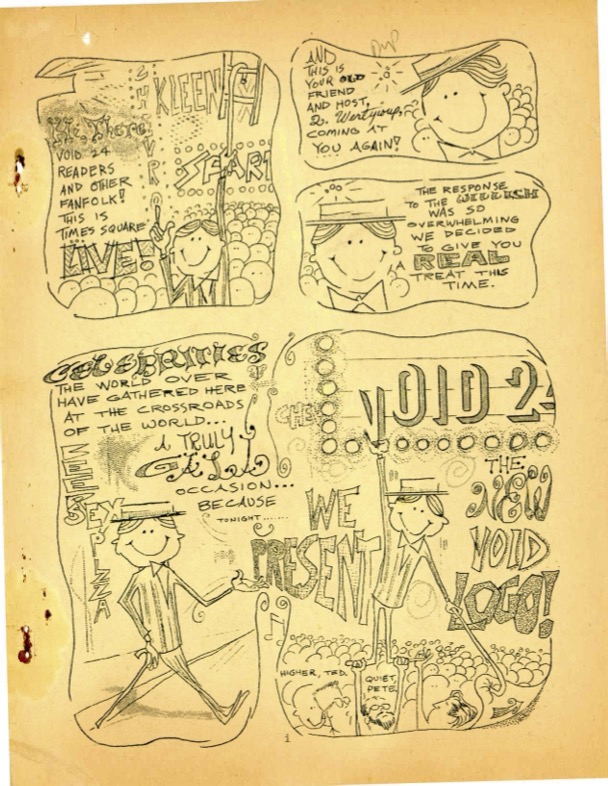 KLEEN
SHAR
Hi, There
VOID 24
READERS
AND OTHER
FANFOLK!
THIS IS
TIMES SQUARE
LIVE!
AND
THIS IS
YOUR OLD
FRIEND
AND HOST,
COMING AT
YOU AGAIN!
THE RESPONSE
TO THE
WAS SO
OVERWHELMING
WE DECIDED
TO GIVE YOU
A REAL
TREAT THIS
TIME.
CELEBRITIES
THE WORLD OVER
HAVE GATHERED HERE
AT THE CROSSROADS
OF THE WORLD...
A TRULY
GALA
OCCASION...
BECAUSE
TONIGHT.......
BEER
SEX
PIZZA
CHE
VOID 2
WE
PRESENT
THE
NEW
VOID
LOGO!
HIGHER, TED.
QUIET,
PETE.
1